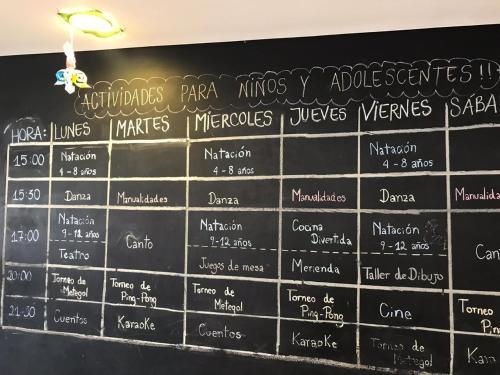 ACTIVIDADES PARA NIÑOS Y ADOLESCENTES!!
HORA: LUNES MARTES MIERCOLES JUEVES VIERNES SÁBA
15:00 Natación Natación Natación
4-8 años 4-8 años 4-8 años
15:30 Danza Manualidades Danza Manualidades Danza Manualida
17:00 Natación Canto Natación Cocina Natación Can
9-12 años 9-12 años Divertida 9-12 años
Teatro Juegos de mesa Merienda Taller de Dibujo
20:00 Torneo de Torneo de Torneo de Torneo de Cine Torneo
Metegol Ping-Pong Metegol Ping-Pong Ping-
21:30 Cuentos Karaoke Cuentos Karaoke Torneo de
Metegol